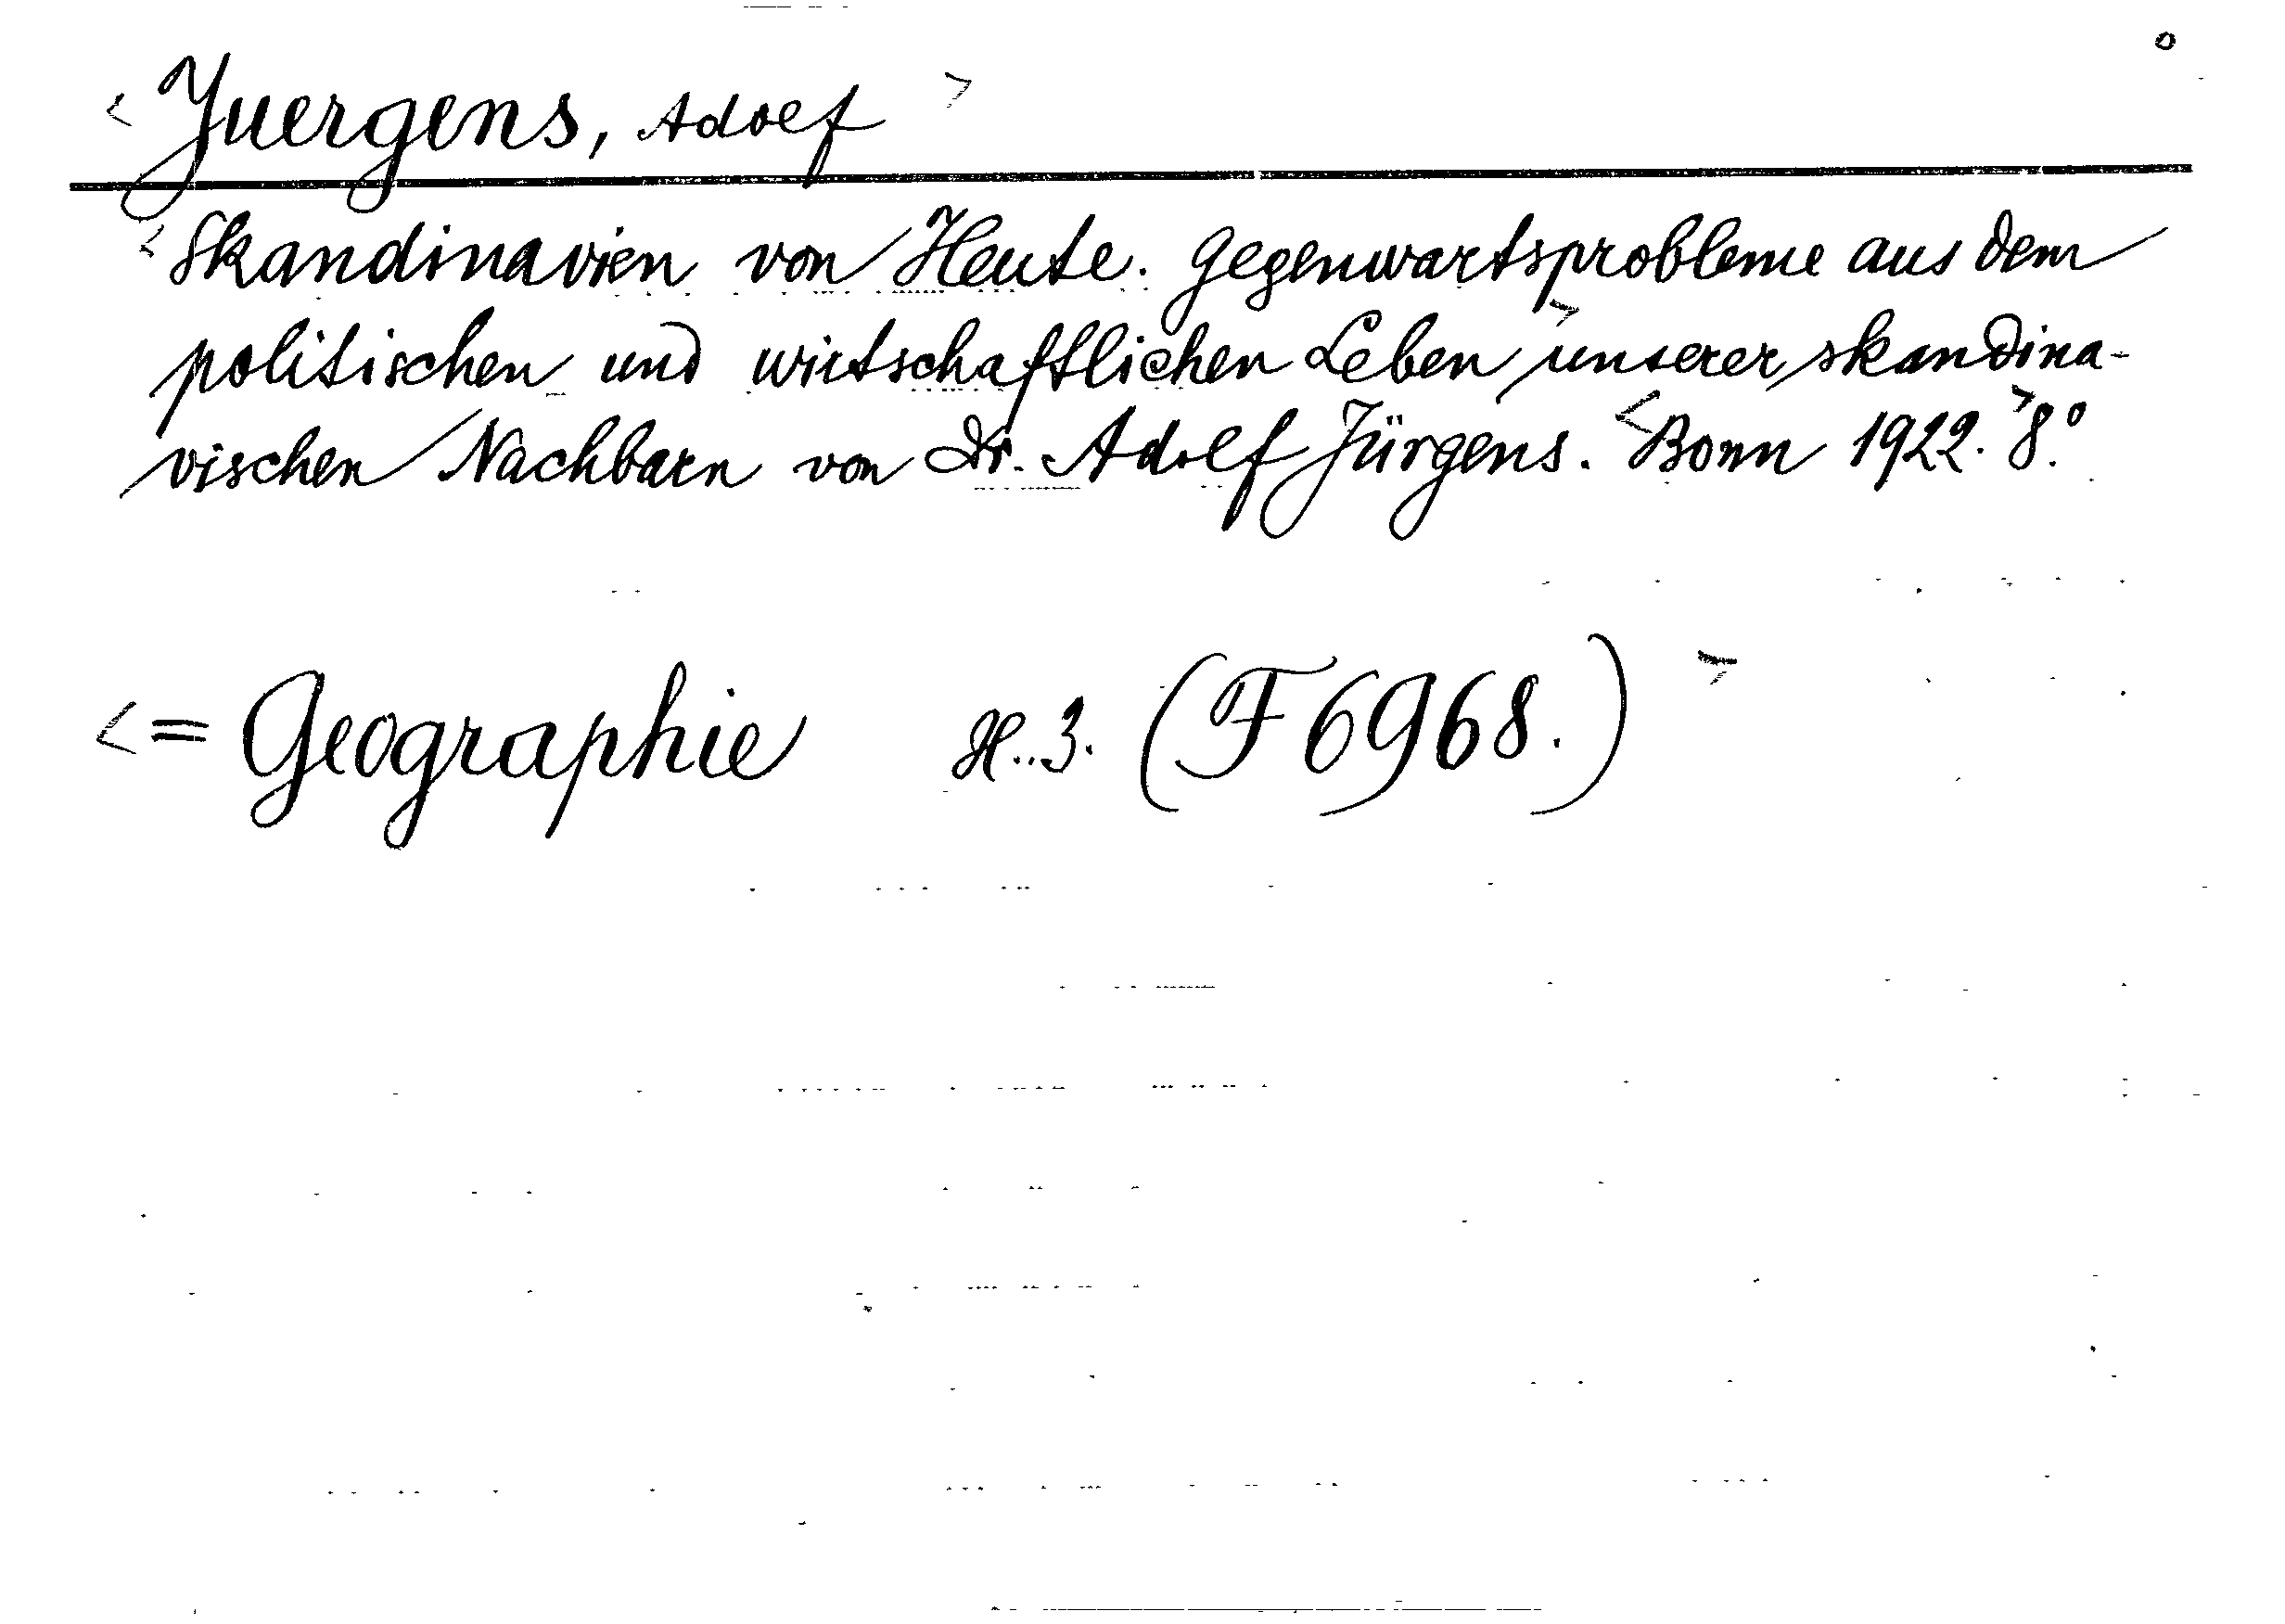 < Juergens, Adolf >
< Skandinavien von Heute. Gegenwartsprobleme aus dem
politischen und wirtschaftlichen Leben > unserer skandina-
vischen Nachbarn von Dr. Adolf Jürgens. < Bonn 1922. > 8.°
< = Geographie H..3. (F 6968.) >